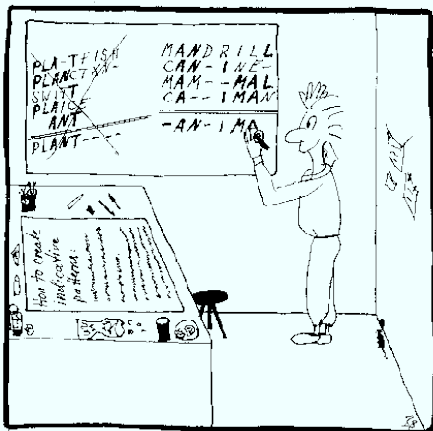 PLA-TFISH
PLAICE
ANT
PLANT----
MANDRILL
CAN-INE-
MAM--MAL
CA--IMAN
-AN-IMA
How to create
indicative
patterns: